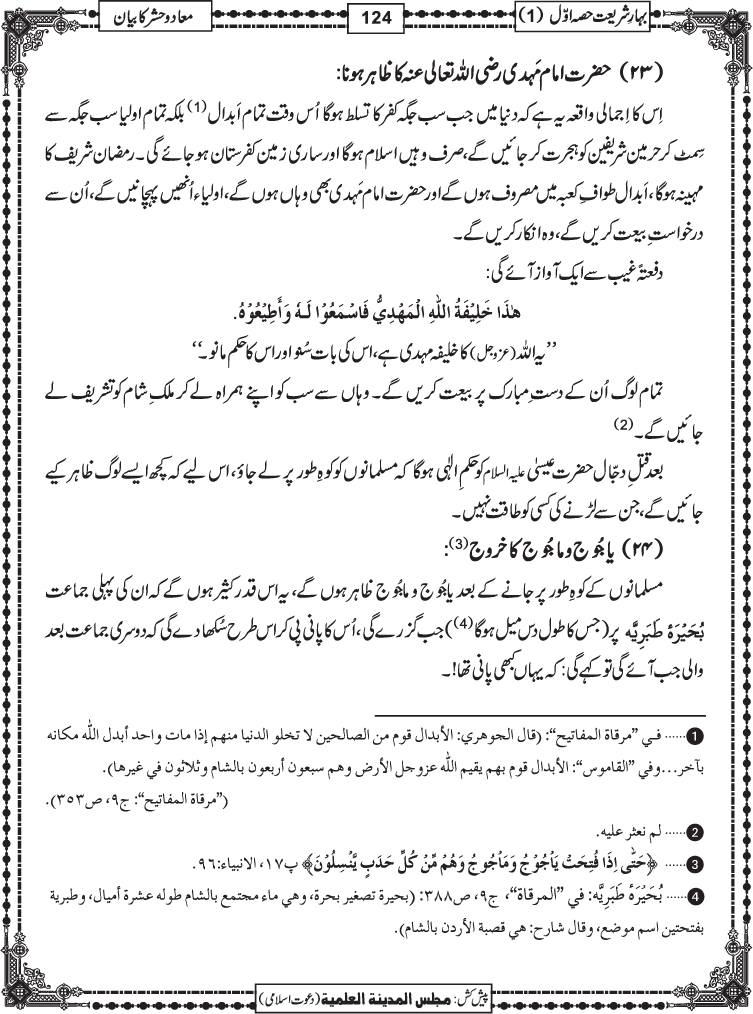 بہارِ شریعت حصہ اوّل (1)
124
معاد و حشر کا بیان
(۲۳) حضرت امام مَہدی رضی اللہ تعالی عنہ کا ظاہر ہونا:
اِس کا اِجمالی واقعہ یہ ہے کہ دنیا میں جب سب جگہ کفر کا تسلط ہوگا اُس وقت تمام اَبدال (1) بلکہ تمام اولیا سب جگہ سے
سِمٹ کر حرمین شریفین کو ہجرت کر جائیں گے، صرف وہیں اسلام ہوگا اور ساری زمین کفرستان ہو جائے گی۔ رمضان شریف کا
مہینہ ہوگا، اَبدال طوافِ کعبہ میں مصروف ہوں گے اور حضرت امام مَہدی بھی وہاں ہوں گے، اولیاء اُنھیں پہچانیں گے، اُن سے
درخواستِ بیعت کریں گے، وہ انکار کریں گے۔
دفعتہً غیب سے ایک آواز آئے گی:
هٰذَا خَلِيْفَةُ اللّٰهِ الْمَهْدِيُّ فَاسْمَعُوْا لَـهٗ وَأَطِيْعُوْهُ.
’’یہ اللہ (عزوجل) کا خلیفہ مہدی ہے، اس کی بات سُنو اور اس کا حکم مانو۔‘‘
تمام لوگ اُن کے دستِ مبارک پر بیعت کریں گے۔ وہاں سے سب کو اپنے ہمراہ لے کر ملکِ شام کو تشریف لے
جائیں گے۔ (2)
بعد قتلِ دجّال حضرت عیسیٰ علیہ السلام کو حکمِ الٰہی ہوگا کہ مسلمانوں کو کوہِ طور پر لے جاؤ، اس لیے کہ کچھ ایسے لوگ ظاہر کیے
جائیں گے، جن سے لڑنے کی کسی کو طاقت نہیں۔
(۲۴) یاجُوج و ماجُوج کا خروج (3):
مسلمانوں کے کوہِ طور پر جانے کے بعد یاجُوج و ماجُوج ظاہر ہوں گے، یہ اس قدر کثیر ہوں گے کہ ان کی پہلی جماعت
بُحَيْرَهٔ طَبَرِيَّه پر (جس کا طول دس میل ہوگا (4)) جب گزرے گی، اُس کا پانی پی کر اس طرح سُکھا دے گی کہ دوسری جماعت بعد
والی جب آئے گی تو کہے گی: کہ یہاں کبھی پانی تھا!۔
1 ...... فـي ”مرقاة المفاتيح“: (قال الجوهري: الأبدال قوم من الصالحين لا تخلو الدنيا منهم إذا مات واحد أبدل الله مكانه
بآخر...وفي ”القاموس“: الأبدال قوم بهم يقيم الله عزوجل الأرض وهم سبعون أربعون بالشام وثلاثون في غيرها).
(”مرقاة المفاتيح“: ج٩، ص٣٥٣).
2 ...... لم نعثر عليه.
3 ...... ﴿حَتّٰى اِذَا فُتِحَتْ يَاْجُوْجُ وَمَاْجُوْجُ وَهُمْ مِّنْ كُلِّ حَدَبٍ يَّنْسِلُوْنَ﴾ پ١٧، الانبیاء:٩٦.
4 ...... بُحَيْرَهٔ طَبَرِيَّه: في ”المرقاة“، ج٩، ص٣٨٨: (بحيرة تصغير بحرة، وهي ماء مجتمع بالشام طوله عشرة أميال، وطبرية
بفتحتين اسم موضع، وقال شارح: هي قصبة الأردن بالشام).
پیش کش: مجلس المدینة العلمیة (دعوت اسلامی)